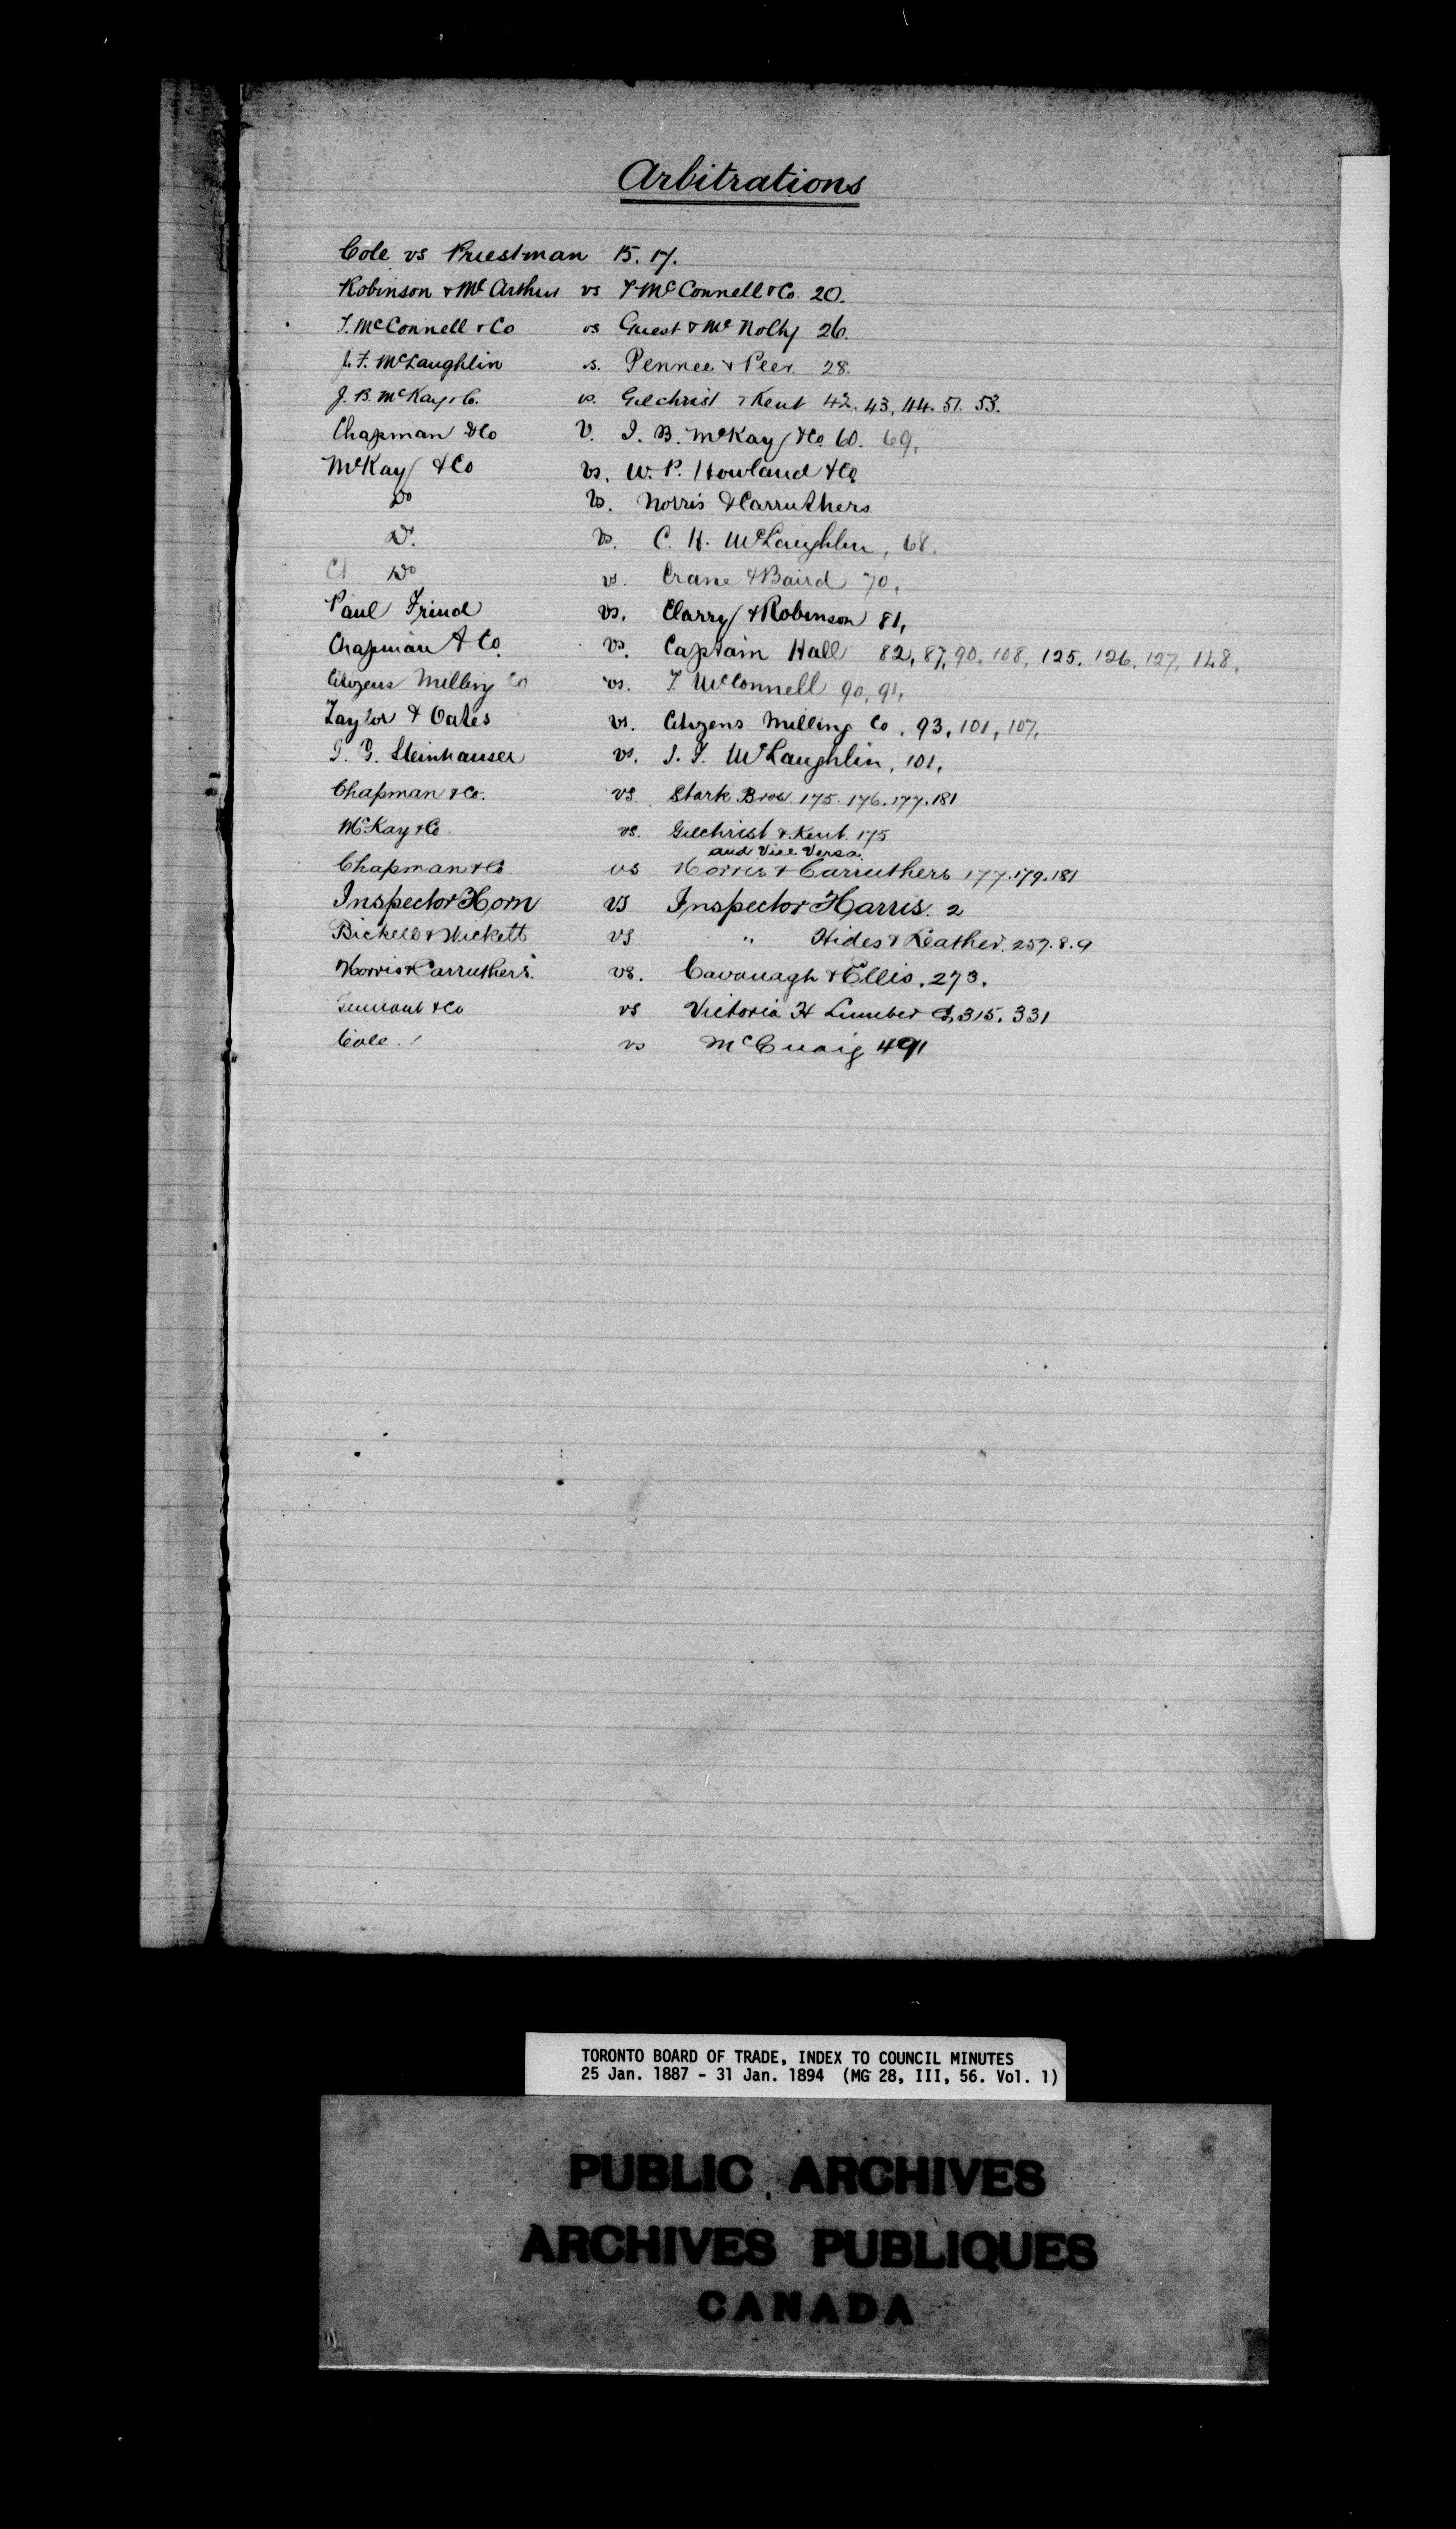 Arbitrations
Cole vs Priestman 15. 17.
Robinson & McArthur vs T McConnell & Co. 20.
T. McConnell & Co vs Guest & McNolty 26.
J. F. McLaughlin vs. Pennee & Peer. 28.
J. B. McKay & Co. vs. Gilchrist & Kent 42. 43, 44. 51. 53.
Chapman & Co V. J. B. McKay & Co. 60. 69.
McKay & Co vs. W. P. Howland & Co
Do vs. Norris & Carruthers
Do. vs. C. H. McLaughlin, 68.
Do vs. Crane & Baird 70.
Paul Frind vs. Clarry & Robinson 81,
Chapman & Co. vs. Captain Hall 82, 87, 90, 108, 125. 126. 127. 148.
Citizens Milling Co vs. T. McConnell 90. 91.
Taylor & Oates vs. Citizens Milling Co. 93, 101, 107.
G. Steinhauser vs. J. F. McLaughlin, 101,
Chapman & Co. vs. Stark Bros. 175. 176. 177. 181
McKay & Co vs. Gilchrist & Kent. 175
and Vice Versa.
Chapman & Co vs Norris & Carruthers 177. 179. 181
Inspector Horn vs Inspector Harris. 2
Bickell & Wickett vs " Hides & Leather. 257. 8. 9
Norris & Carruthers. vs. Cavanagh & Ellis. 273.
Tennant & Co vs Victoria H Lumber Co, 315. 331
Cole. vs McCuaig 491
TORONTO BOARD OF TRADE, INDEX TO COUNCIL MINUTES
25 Jan. 1887 - 31 Jan. 1894 (MG 28, III, 56. Vol. 1)
PUBLIC ARCHIVES
ARCHIVES PUBLIQUES
CANADA